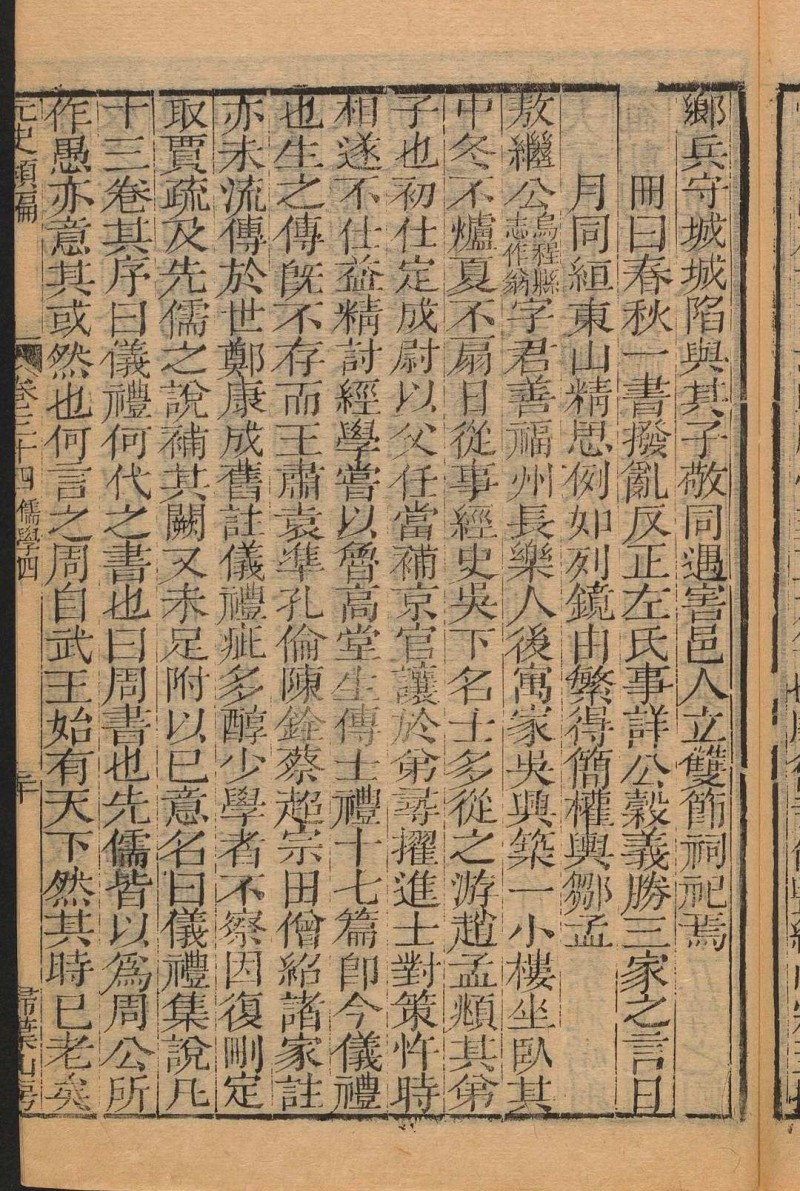 鄉兵守城城陷與其子敬同遇害邑人立雙節祠祀焉
冊曰春秋一書撥亂反正左氏事詳公穀義勝三家之言日
月同絙東山精思例如列鏡由繁得簡權輿鄒孟
敖繼公烏程縣志作翁字君善福州長樂人後寓家吳興築一小樓坐臥其
中冬不爐夏不扇日從事經史吳下名士多從之游趙孟頫其弟
子也初仕定成尉以父任當補京官讓於弟尋擢進士對策忤時
相遂不仕益精討經學嘗以魯高堂生傳士禮十七篇卽今儀禮
也生之傳旣不存而王肅袁準孔倫陳銓蔡超宗田僧紹諸家註
亦未流傳於世鄭康成舊註儀禮疵多醇少學者不察因復刪定
取賈疏及先儒之說補其闕又未足附以已意名曰儀禮集說凡
十三卷其序曰儀禮何代之書也曰周書也先儒皆以爲周公所
作愚亦意其或然也何言之周自武王始有天下然其時已老矣
元史類編 卷三十四 儒學四 掃葉山房